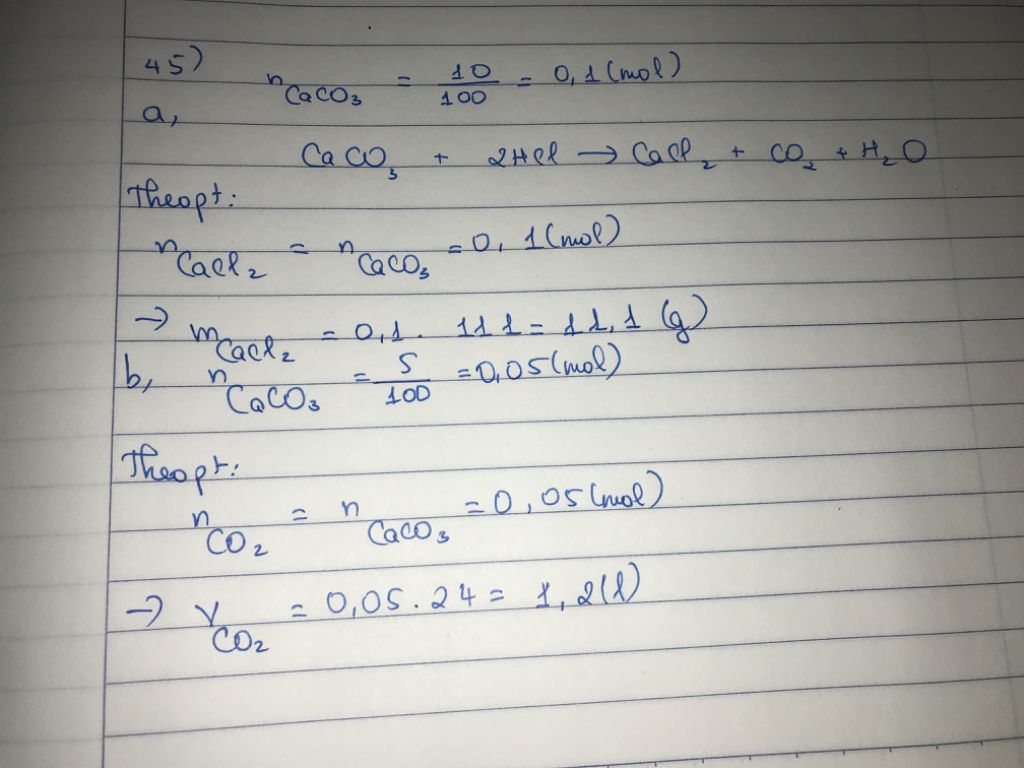 45) nCaCO₃ = 10/100 = 0,1 (mol)
a,
CaCO₃ + 2HCl → CaCl₂ + CO₂ + H₂O
Theo pt:
nCaCl₂ = nCaCO₃ = 0,1 (mol)
→ mCaCl₂ = 0,1 . 111 = 11,1 (g)
b, nCaCO₃ = 5/100 = 0,05 (mol)
Theo pt:
nCO₂ = nCaCO₃ = 0,05 (mol)
→ VCO₂ = 0,05 . 24 = 1,2 (l)